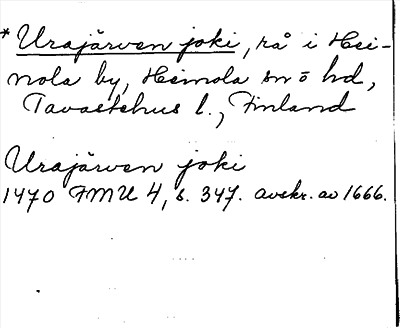 * Urajärven joki, rå i Hei-
nola by, Heinola sn o hd,
Tavastehus l., Finland
Urajärven joki
1470 FMU 4, s. 347. avskr. av 1666.